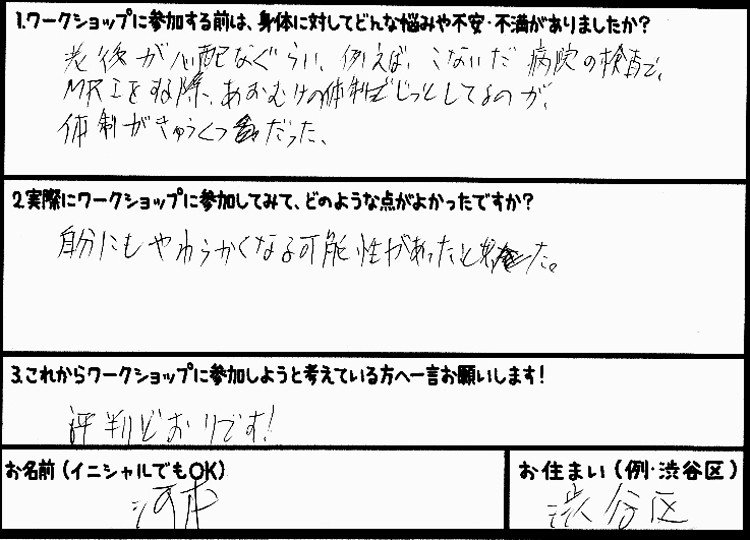 1.ワークショップに参加する前は、身体に対してどんな悩みや不安・不満がありましたか?
老後が心配なぐらい、例えば、こないだ病院の検査で、
MRIをする際、あおむけの体制でじっとしてるのが、
体制がきゅうくつだった、
2.実際にワークショップに参加してみて、どのような点がよかったですか?
自分にもやわらかくなる可能性があったと た。
3.これからワークショップに参加しようと考えている方へ一言お願いします!
評判どおりです!
お名前(イニシャルでもOK)
お住まい(例・渋谷区)
渋谷区